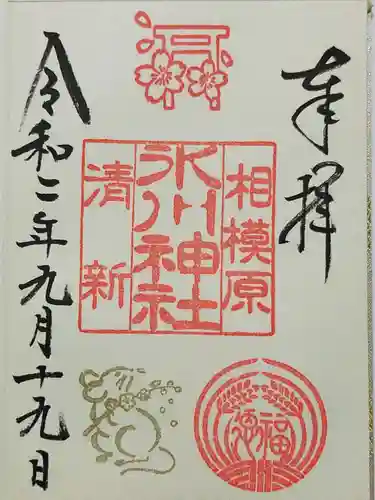 奉拝
相模原
氷川神社
清新
福
令和二年九月十九日